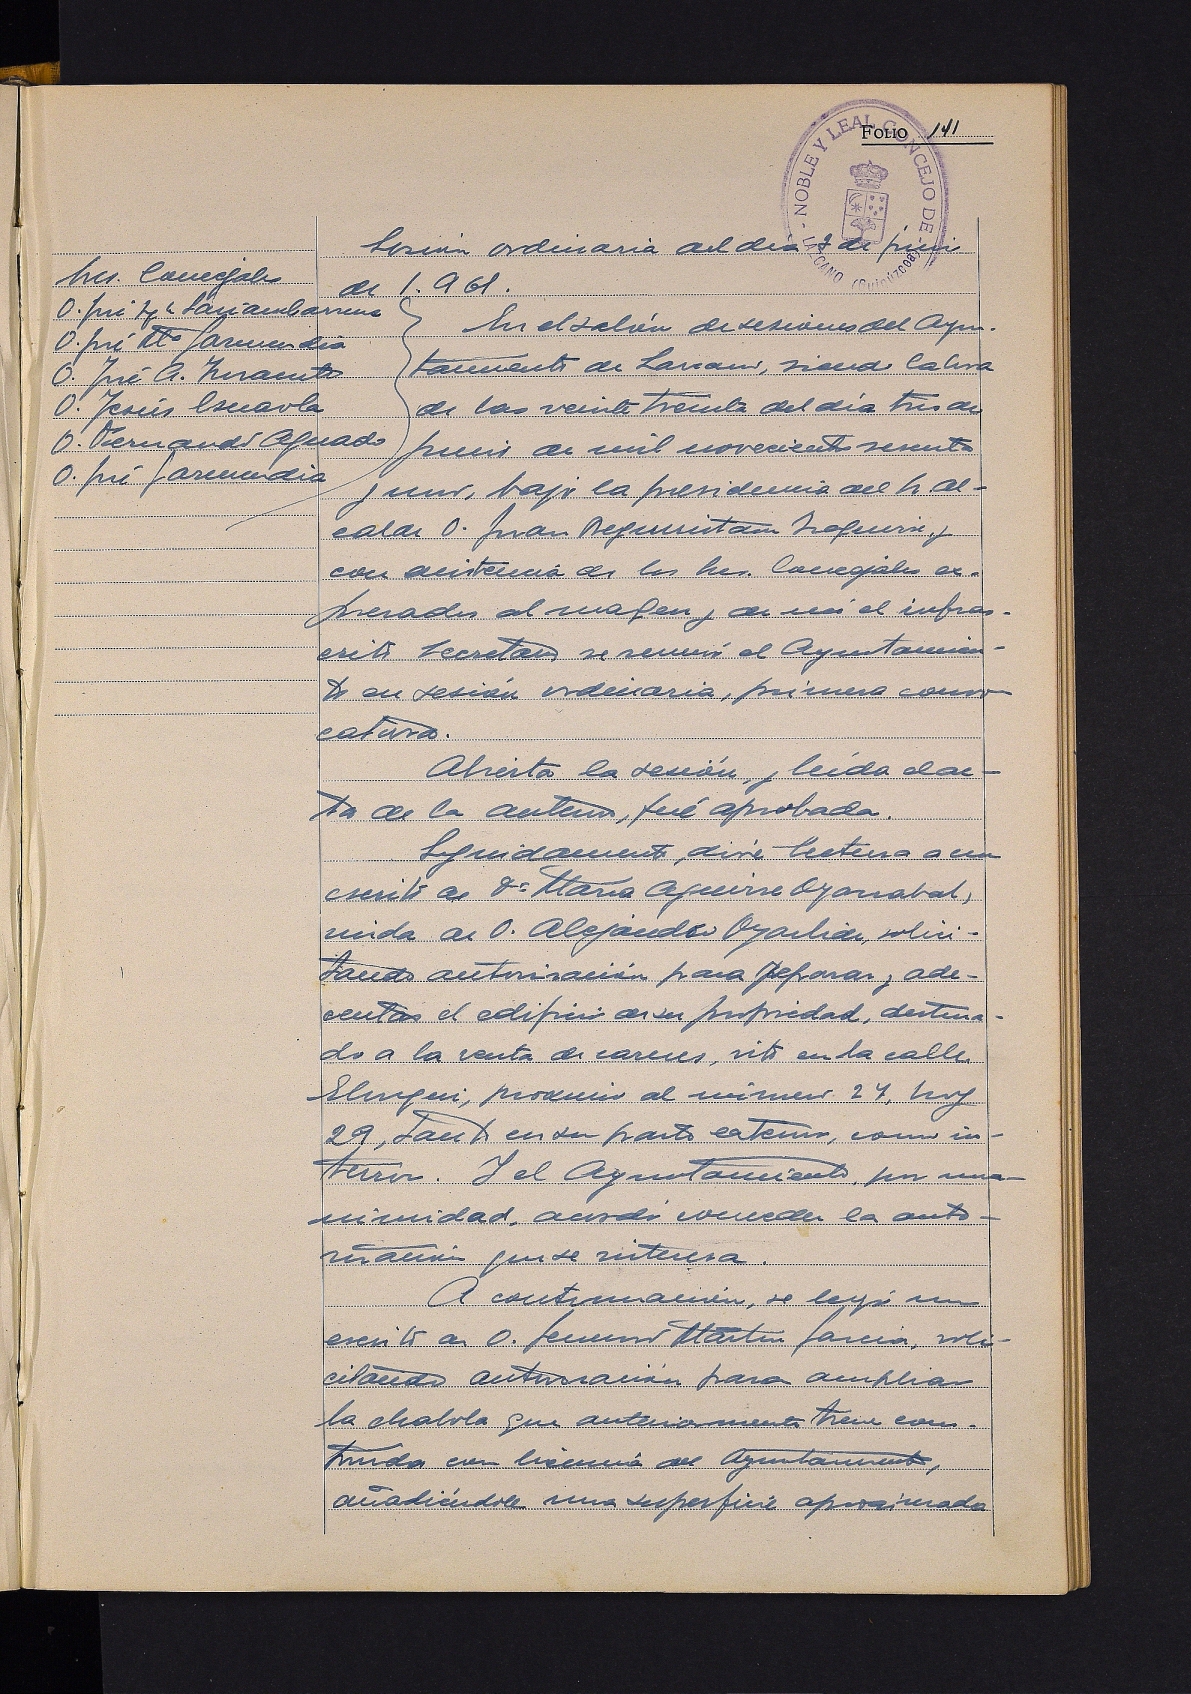 FOLIO 141
NOBLE Y LEAL CONCEJO DE LAZCANO (Guipúzcoa)
Sesión ordinaria del dia 3 de junio
de 1.961.
Sres. Concejales
D. José
D. José Mª Garmendia
D. José A.
D. Jesús
D. Fernando Aguado
D. José Garmendia
En el salón de sesiones del Ayun-
tamiento de Lazcano, siendo la hora
de las veinte treinta del día tres de
junio de mil novecientos sesenta
y uno, bajo la presidencia del Sr Al-
calde D. Juan
con asistencia de los Sres. Concejales ex-
presados al margen y de mi el infras-
crito Secretario se reunió el Ayuntamien-
to en sesión ordinaria, primera convo-
catoria.
Abierta la sesión, y leída el ac-
ta de la anterior, fué aprobada.
Seguidamente, dióse lectura a un
escrito de Dª María Aguirre Oyarzabal,
viuda de D. Alejandro Oyarbide, solici-
tando autorización para reparar y ade-
centar el edificio de su propiedad, destina-
do a la venta de carnes, sito en la calle
Elosegui, proximo al número 27, hoy
29, tanto en su parte exterior, como in-
terior. Y el Ayuntamiento, por una-
nimidad, acordó conceder la auto-
rización que se interesa.
A continuación, se leyó un
escrito de D. Martin Garcia, soli-
citando autorización para ampliar
la chabola que anteriormente tiene cons-
truida con licencia del Ayuntamiento,
añadiéndole una superficie aproximada